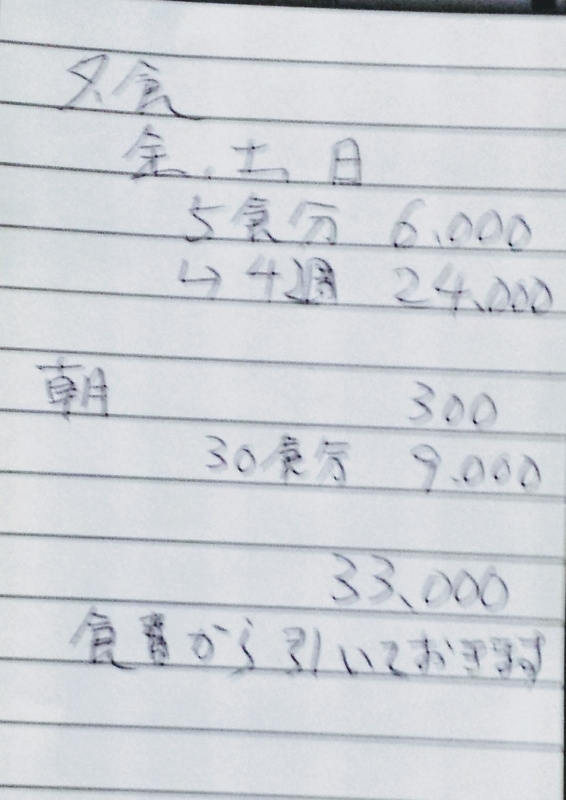 夕食
金、土、日
5食分 6,000
↳ 4週 24,000
朝 300
30食分 9,000
33,000
食費から引いておきます